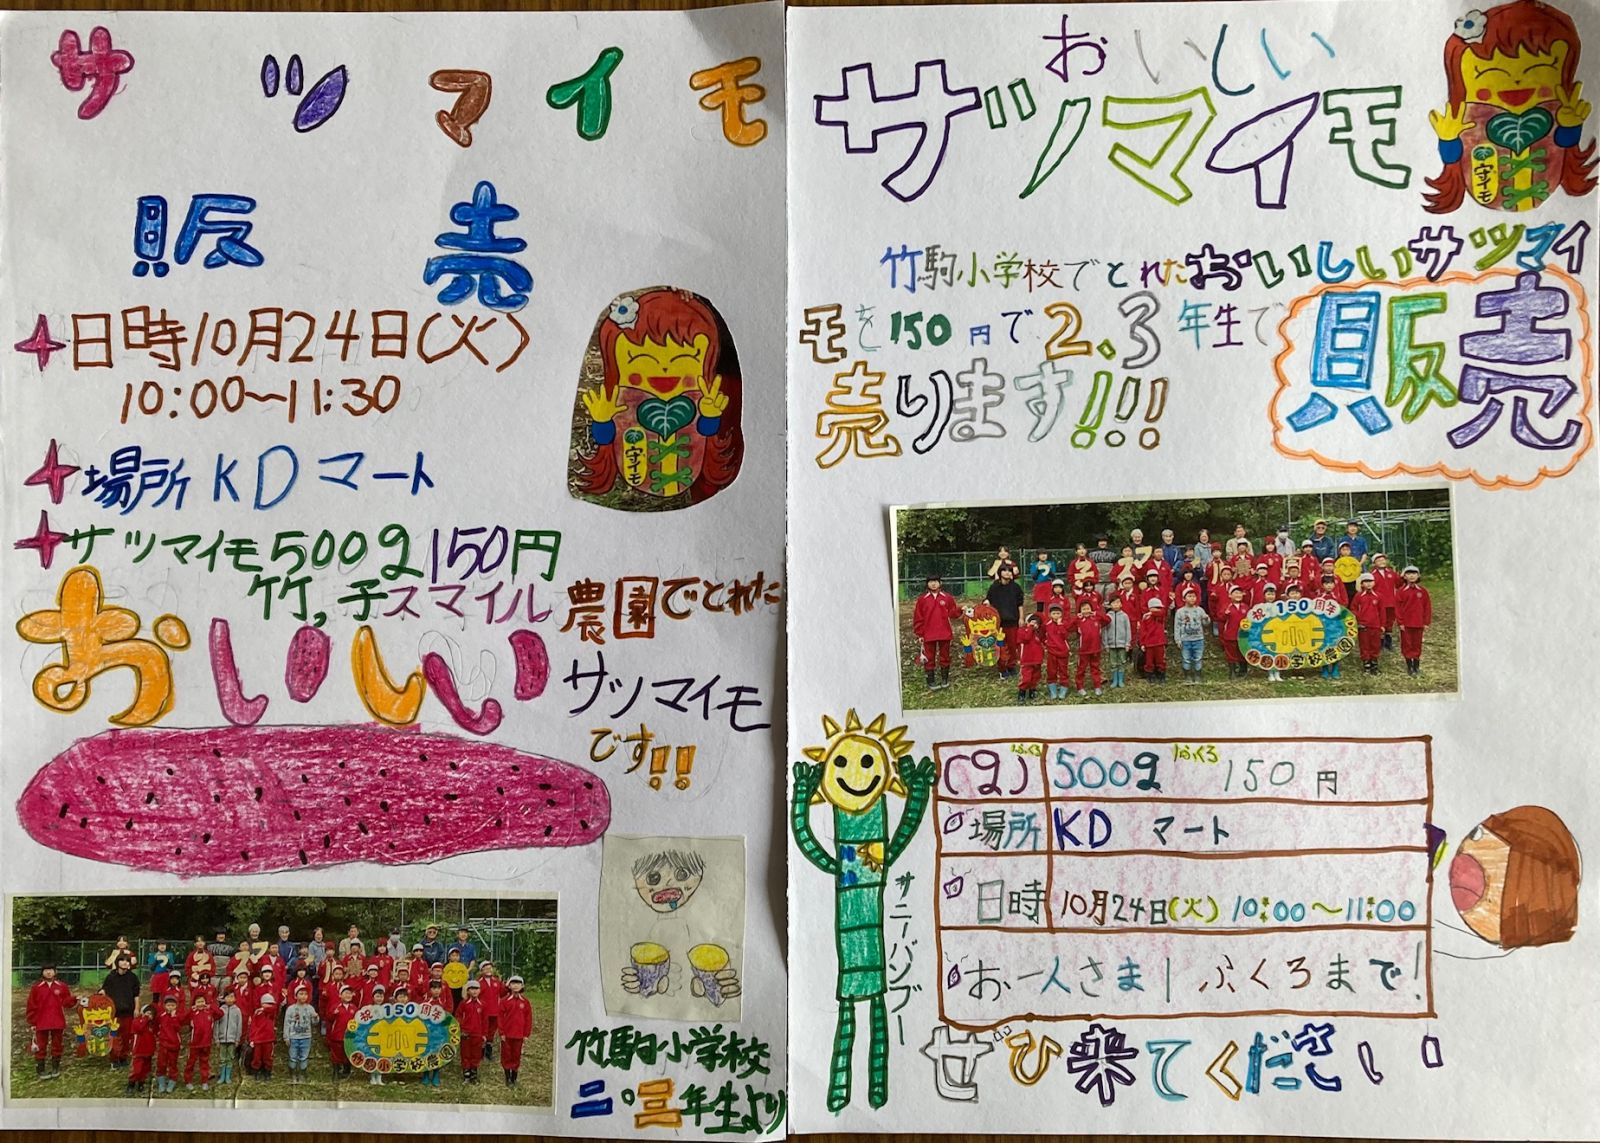 サツマイモ
販売
日時10月24日(火)
10:00〜11:30
場所KDマート
サツマイモ500g150円
竹,子スマイル農園でとれた
おいしい
サツマイモ
です!!
守イモ
祝150周年
小
竹駒小学校農園
竹駒小学校
二・三年生より
おいしい
サツマイモ
守イモ
竹駒小学校でとれたおいしいサツマイ
モを150円で2.3年生で
売ります!!!
販売
祝150周年
小
竹駒小学校農園
サニーバンブー
(g)1ふくろ 500g 1ふくろ 150円
場所 KDマート
日時 10月24日(火)10:00〜11:00
お一人さま1ふくろまで!
ぜひ来てください